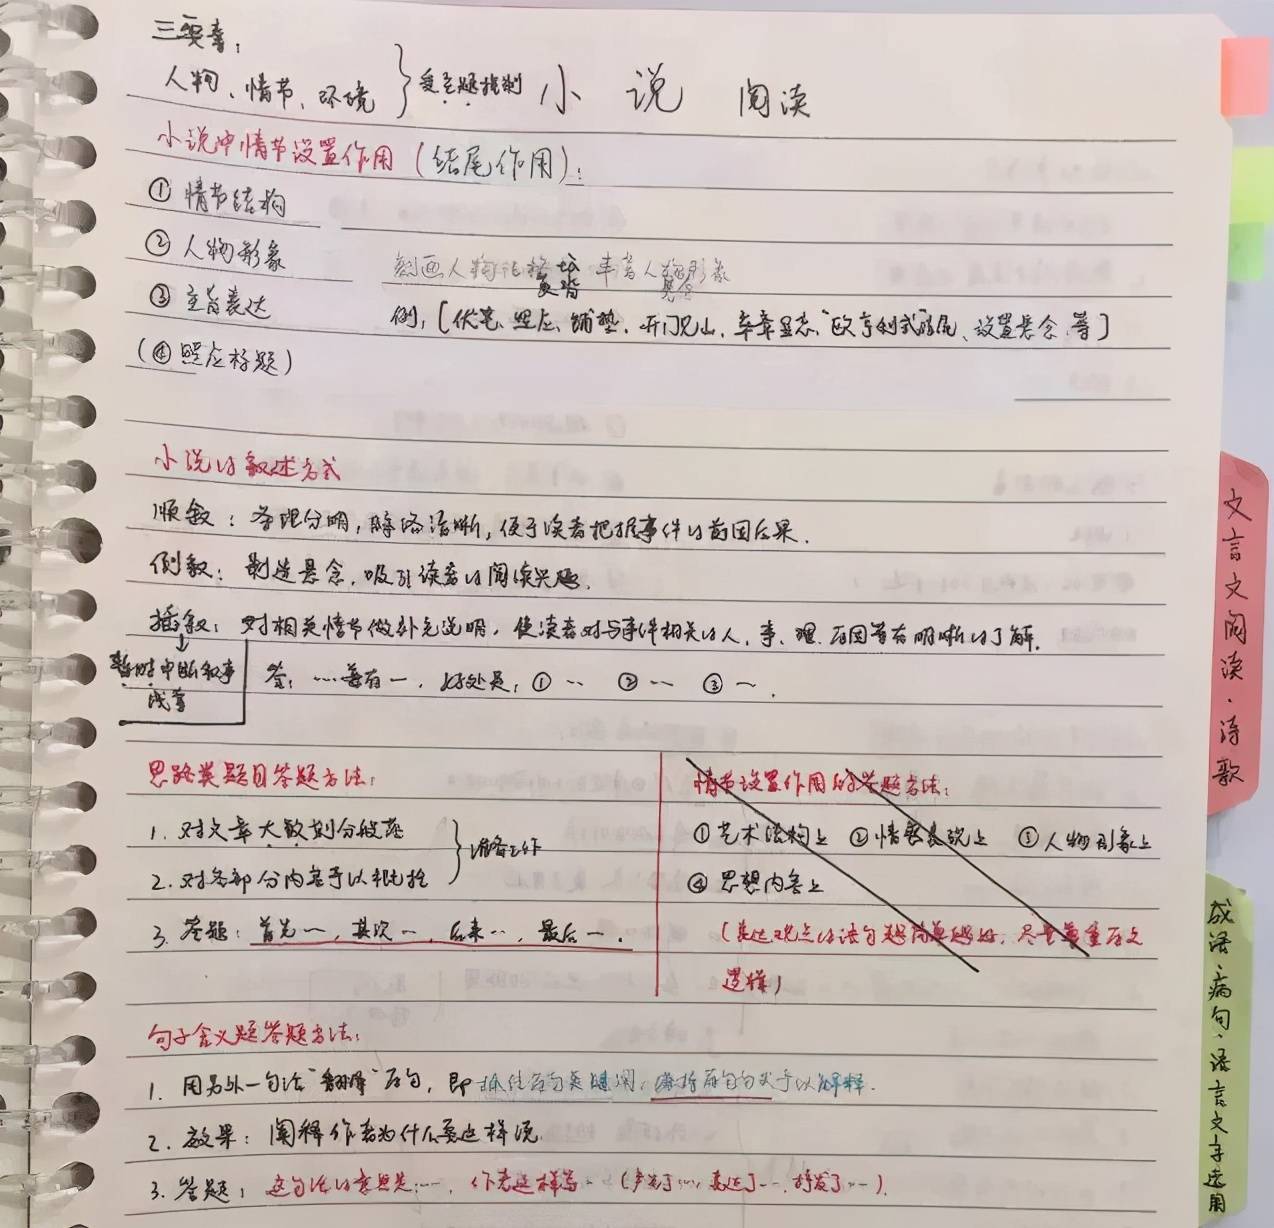 三要素：
人物、情节、环境 } 受主题控制
小说 阅读
小说中情节设置作用（结尾作用）：
① 情节结构
② 人物形象
刻画人物性格 丰富人物形象
③ 主旨表达
例，[伏笔、照应、铺垫、开门见山、卒章显志、“欧亨利式”结尾、设置悬念 等]
（④ 照应标题）
小说的叙述方式
顺叙：条理分明，脉络清晰，便于读者把握事件的前因后果.
倒叙：制造悬念，吸引读者的阅读兴趣.
插叙：对相关情节做补充说明，使读者对与事件相关的人、事、理、原因等有明晰的了解.
暂时中断叙事
线索
答：…兼有…，好处是：①… ②… ③….
思路类题目答题方法：
1. 对文章大致划分段落
2. 对各部分内容予以概括
} 准备工作
3. 答题：首先…，其次…，后来…，最后….
情节设置作用的答题方法：
① 艺术结构上 ② 情感表现上 ③ 人物形象上
④ 思想内容上
（表达观点的语句越简单越好，尽量尊重原文
逻辑）
句子含义题答题方法：
1. 用另外一句话“翻译”原句，即抓住原句关键词，将原句予以解释.
2. 效果：阐释作者为什么要这样说.
3. 答题：这句话的意思是……，作者这样写…（突出了…，表达了…，抒发了…）.
文言文阅读·诗歌
成语·病句·语言文字运用